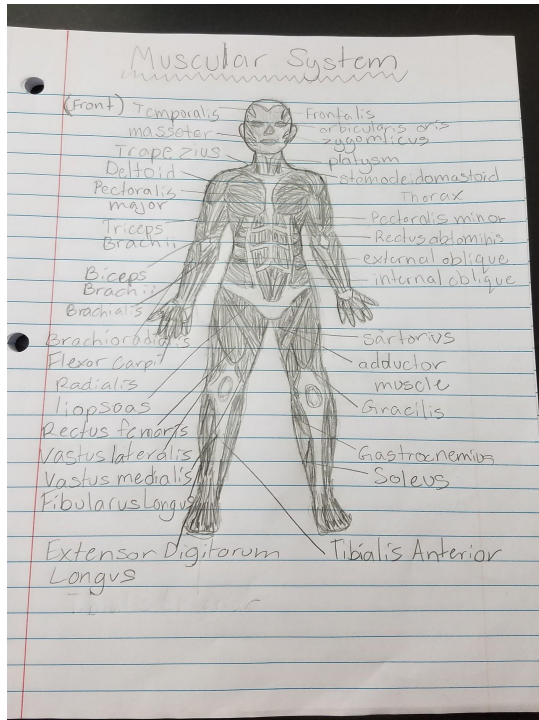 Muscular System
(Front)
Temporalis
masseter
Trapezius
Deltoid
Pectoralis
major
Triceps
Brachii
Biceps
Brachii
Brachialis
Brachioradialis
Flexor Carpi
Radialis
Iliopsoas
Rectus femoris
Vastus lateralis
Vastus medialis
Fibularus Longus
Extensor Digitorum
Longus
Frontalis
orbicularis oris
zygomticus
platysm
Thorax
Pectoralis minor
Rectus abdominis
external oblique
internal oblique
sartorius
adductor
muscle
Gracilis
Gastrocnemius
Soleus
Tibialis Anterior